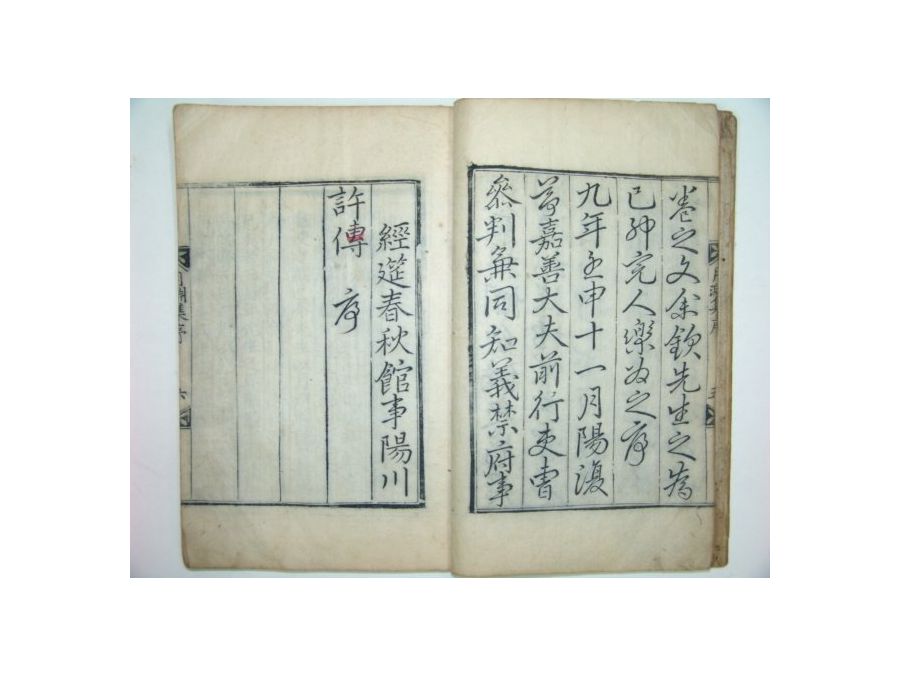 卷之文余欽先生之為
已仰完人樂為之序
九年壬申十一月陽復
節嘉善大夫前行吏曹
參判兼同知義禁府事
經筵春秋館事陽川
許傳 序
集序
六